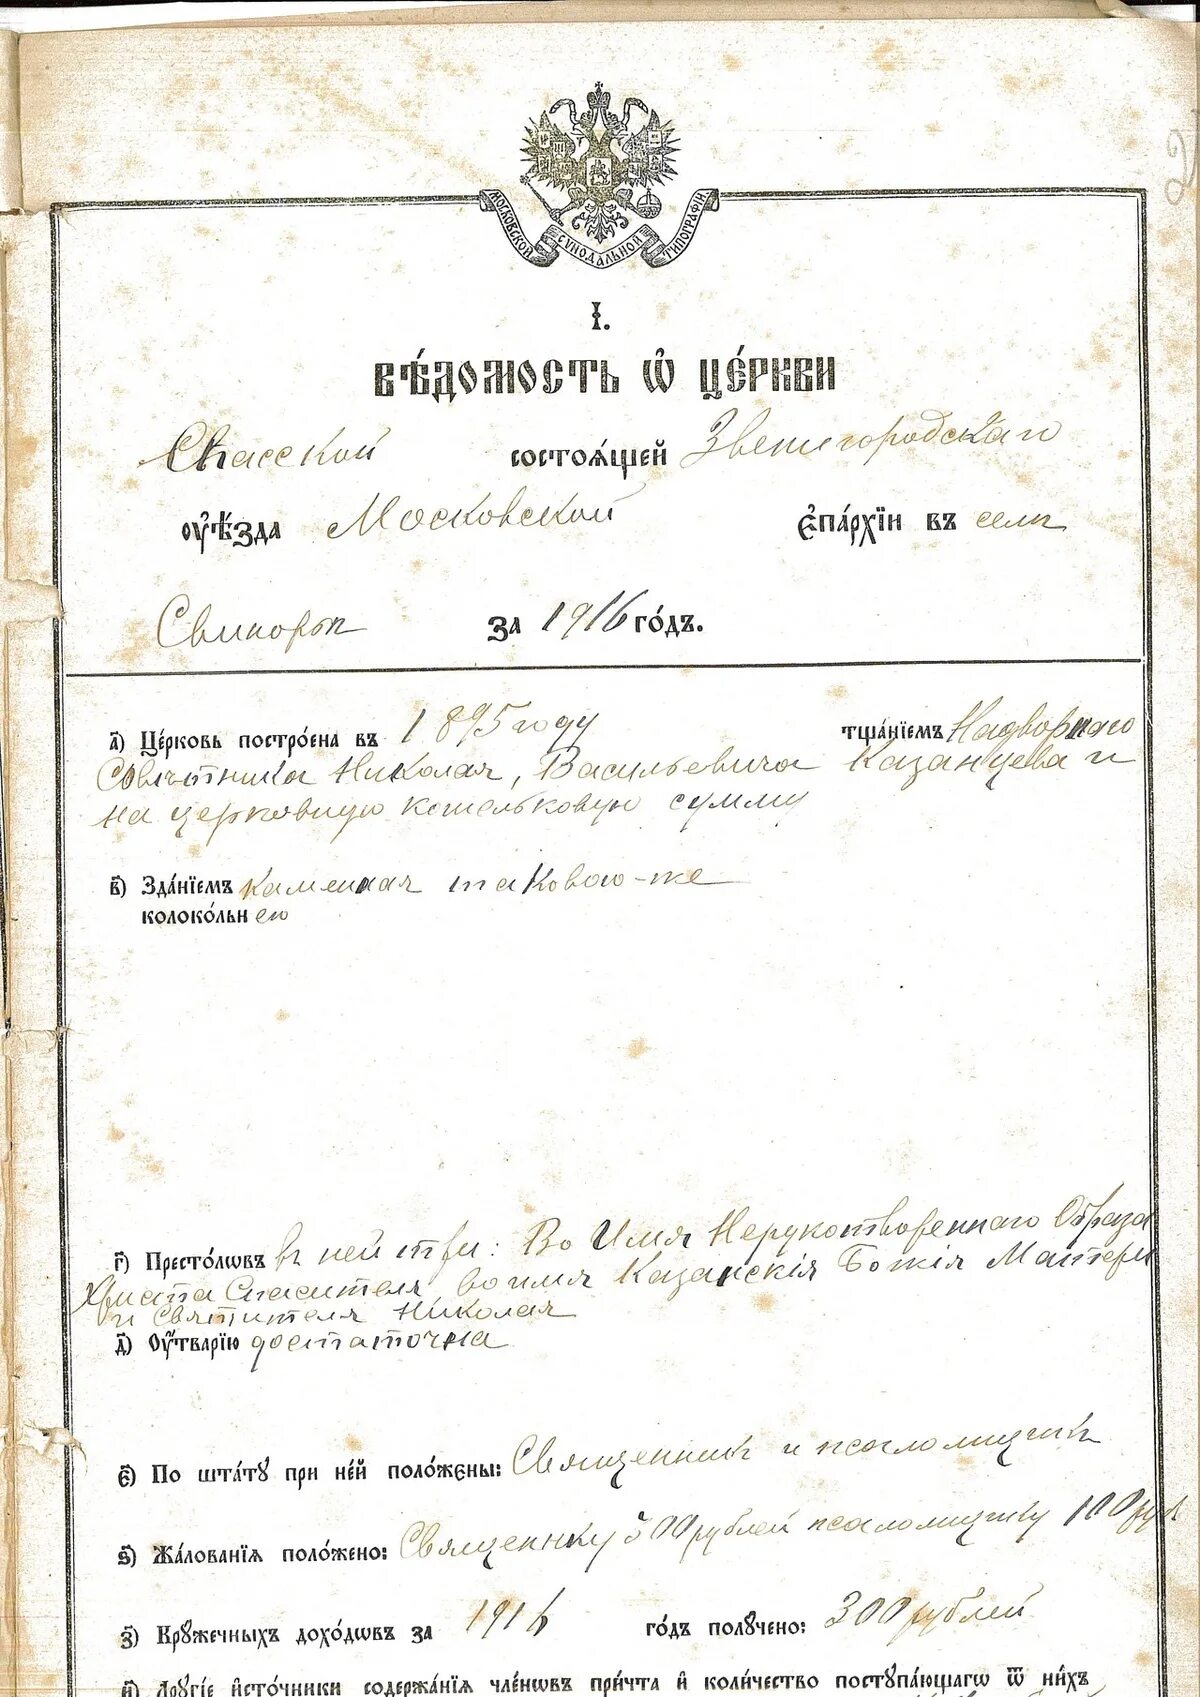 МОСКОВСКОЙ СѴНОДАЛЬНОЙ ТИПОГРАФІИ
І.
Вѣ́домость ѡ҆ це́ркви
Спасской состоѧ́щей Звенигородскаго
ᲂу҆ѣ́зда Московской є҆па́рхїи въ селѣ
за 1916 го́дъ.
а҃) Це́рковь постро́ена въ 1895 году тща́нїемъ Надворнаго
Совѣтника Николая Васильевича Казанцева и
на церковную кошельковую сумму
в҃) Зда́нїемъ каменная таковою-же
колоко́льн ею
г҃) Престо́лѡвъ въ ней три: Во Имя Нерукотвореннаго Образа
Христа Спасителя, во имя Казанскія Божія Матери
и Святителя Николая
д҃) Оу҆́тварїю достаточна
є҃) По шта́тꙋ при не́й поло́жєны: Священник и псаломщик
ѕ҃) Жа́лованїѧ поло́жено: Священнку 300 рублей псаломщику 100 руб
з҃) Крꙋ́жечныхъ дохо́дѡвъ за 1916 го́дъ полꙋчено: 300 рублей
и҃) Дрꙋгі́е и҆сто́чники содержа́нїѧ чле́нѡвъ при́чта и҆ коли́чество постꙋпа́ющагѡ ѿ ни́хъ